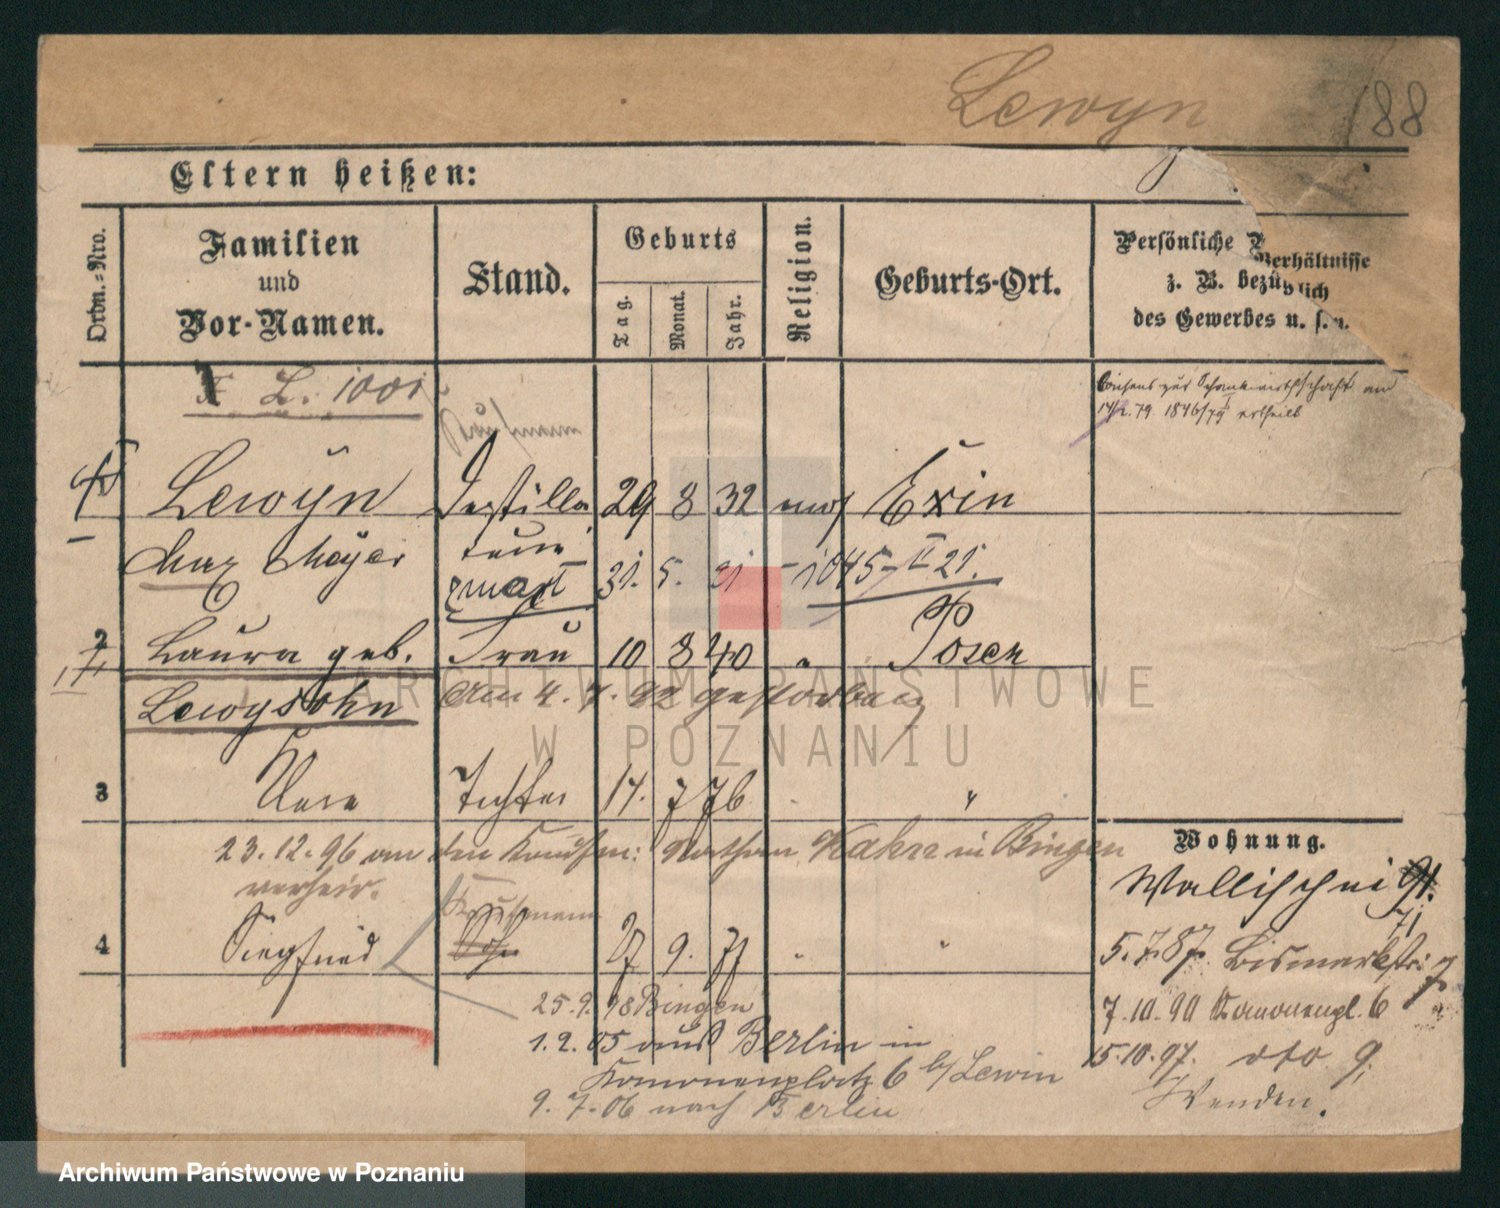 Lewyn 188
Eltern heißen:
Ordn.-Nro.
Familien
und
Vor-Namen.
Stand.
Geburts
Tag.
Monat.
Jahr.
Religion.
Geburts-Ort.
Persönliche Verhältnisse
z. B. bezüglich
des Gewerbes u. s. w.
L. 1001
Consens zur Schankwirthschaft am
1846/79 ertheilt
Kaufmann
Lewyn Destilla 29 8 32 mos Exin
Max Meyer teur 31. 5. 31
2 Laura geb. Frau 10 8 40 " Posen
Lewysohn Am 4. 7. 92 gestorben
3 Vera Tochter 14. 7 76 "
23.12.96 an den Kaufm: Nathan Kahn in Bingen
verheir.
Wohnung.
Wallischei 91.
71
Kaufmann
4 Siegfried Sohn 27 9. 77 "
5.7.87. Bismarckstr: 7
25.9.98 Bingen
7.10.90 Kanonenpl. 6
1.2.05 aus Berlin in
15.10.97. dto 9.
Kanonenplatz 6 b/Lewin
9.7.06 nach Berlin
Wenden.
ARCHIWUM PAŃSTWOWE
W POZNANIU
Archiwum Państwowe w Poznaniu